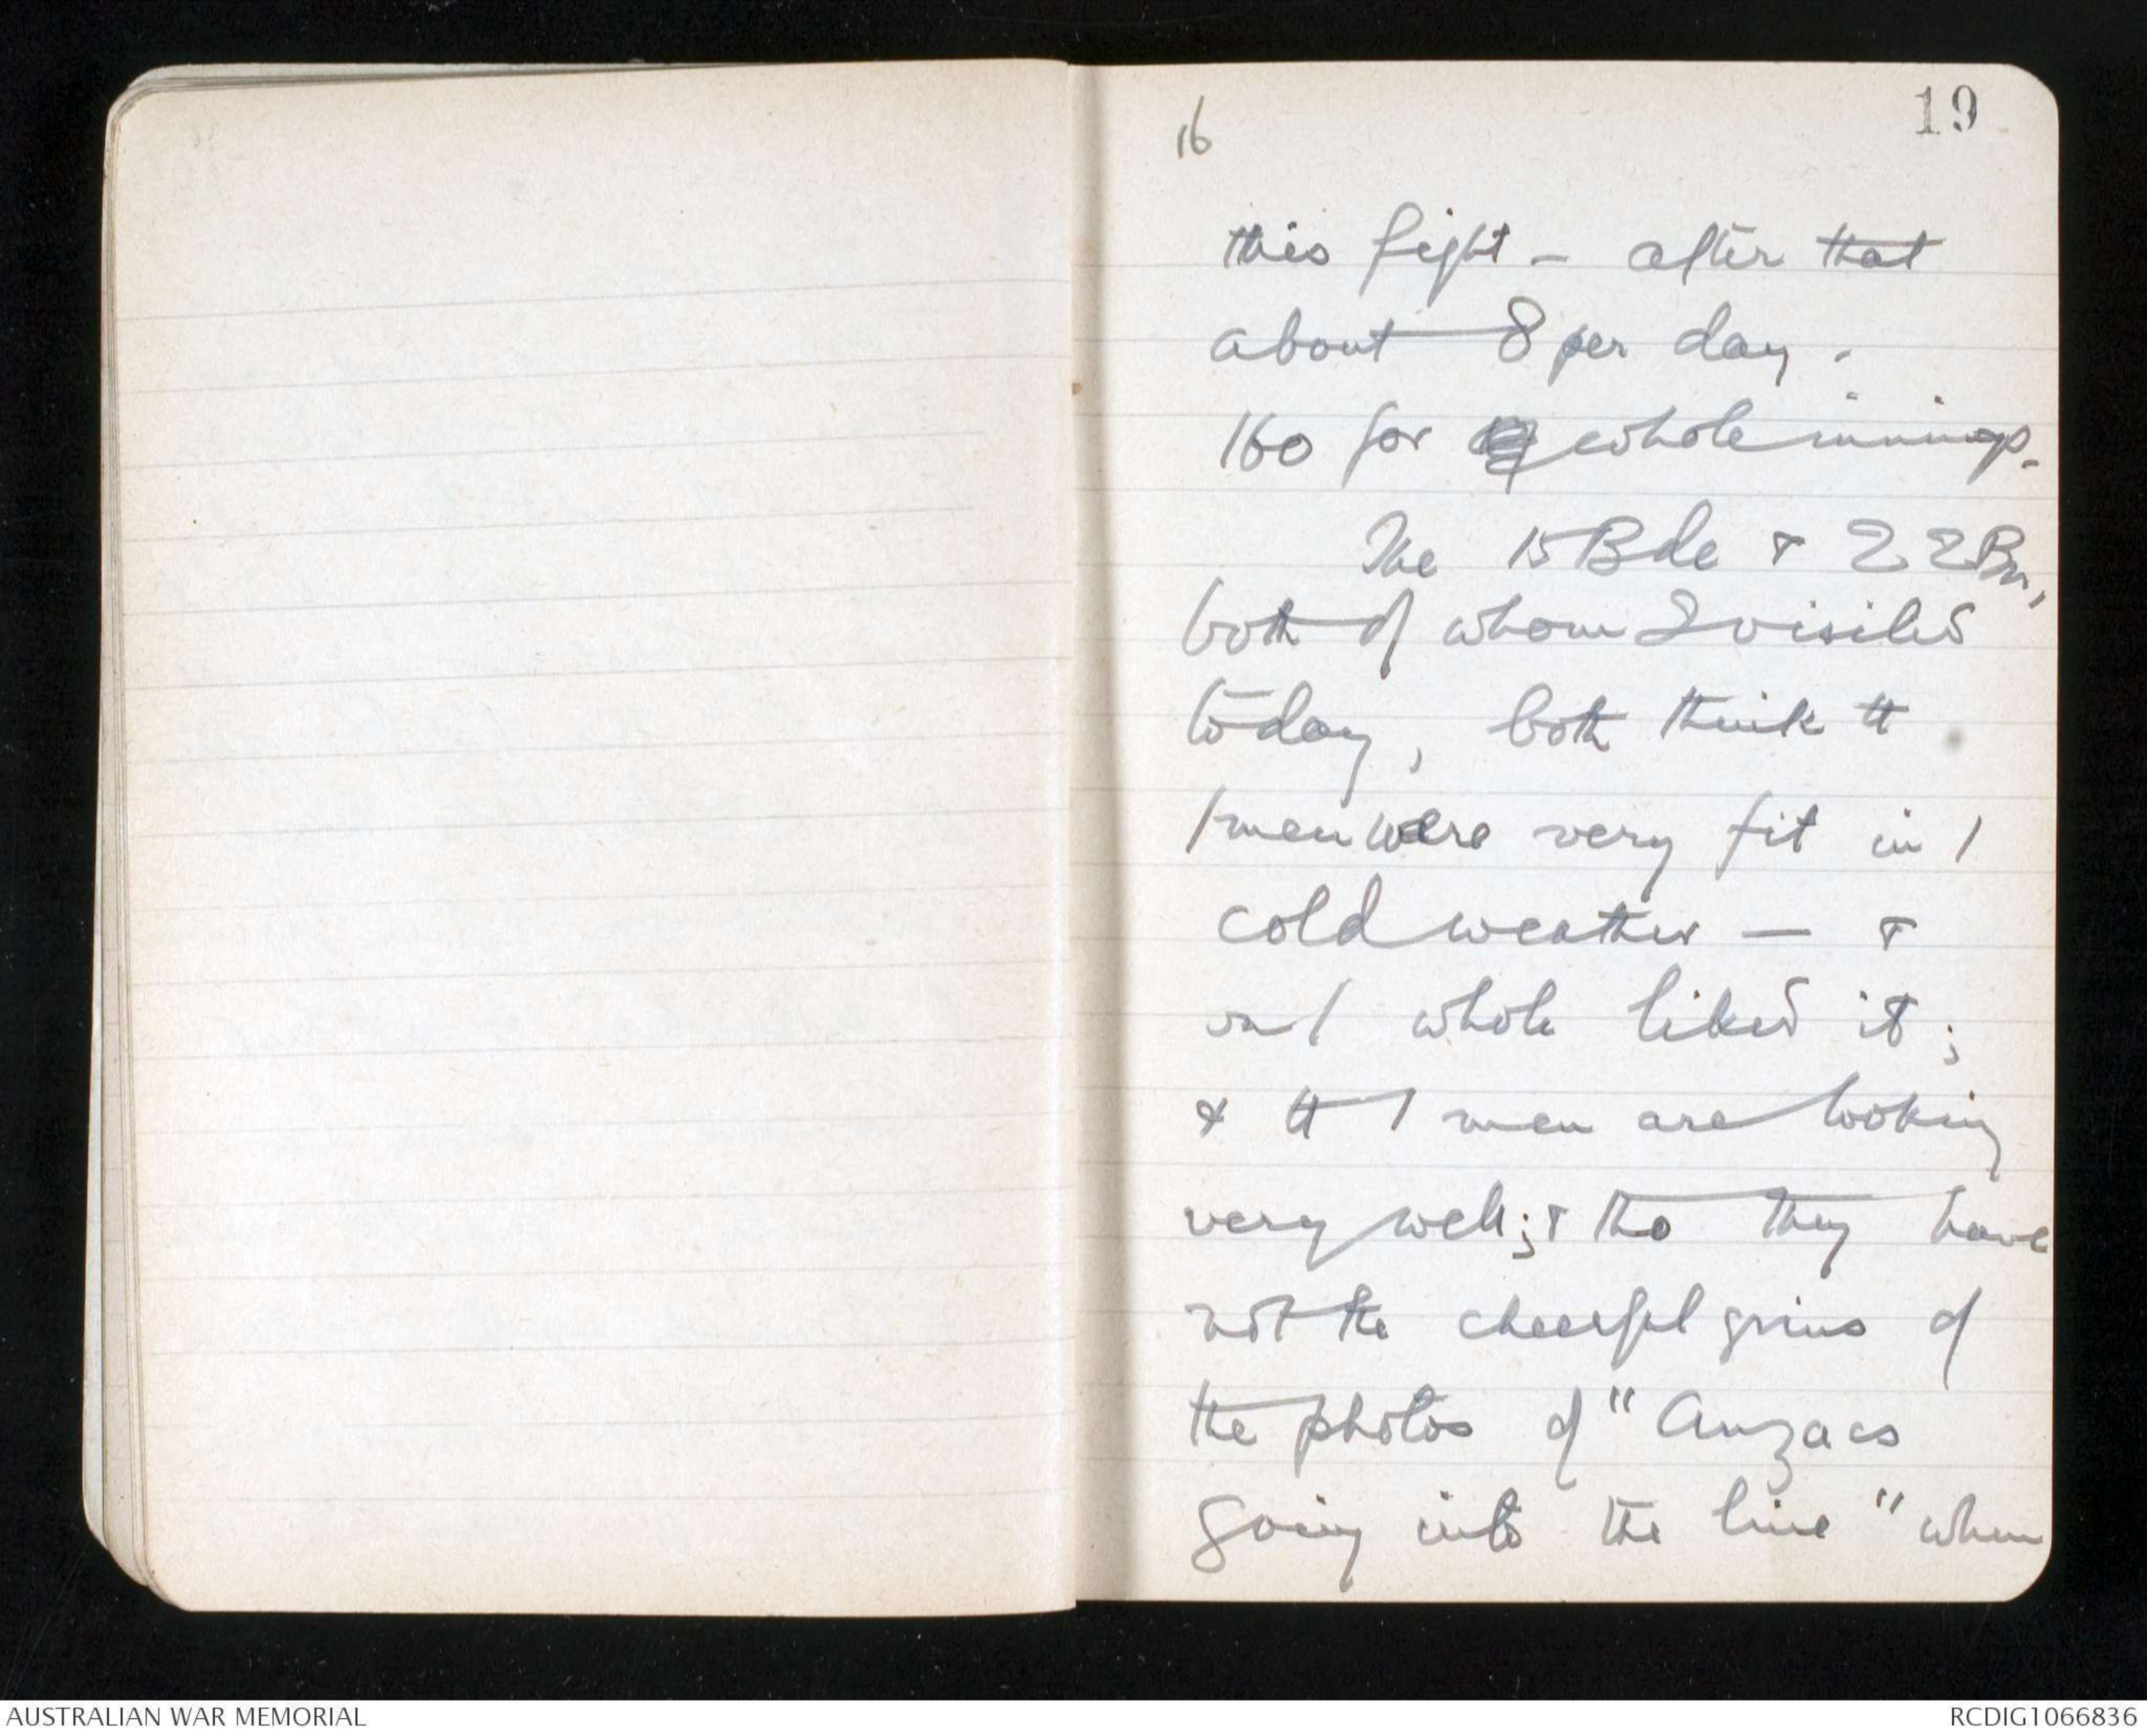 19
16
this fight – after that
about 8 per day.
160 for whole innings.
The 15 Bde & 22 Bn,
both of whom I visited
today, both think tt
/ men were very fit in /
cold weather — &
on / whole liked it;
& tt / men are looking
very well; & tho they have
not the cheerful grins of
the photos of "Anzacs
going into the line" when
AUSTRALIAN WAR MEMORIAL
RCDIG1066836